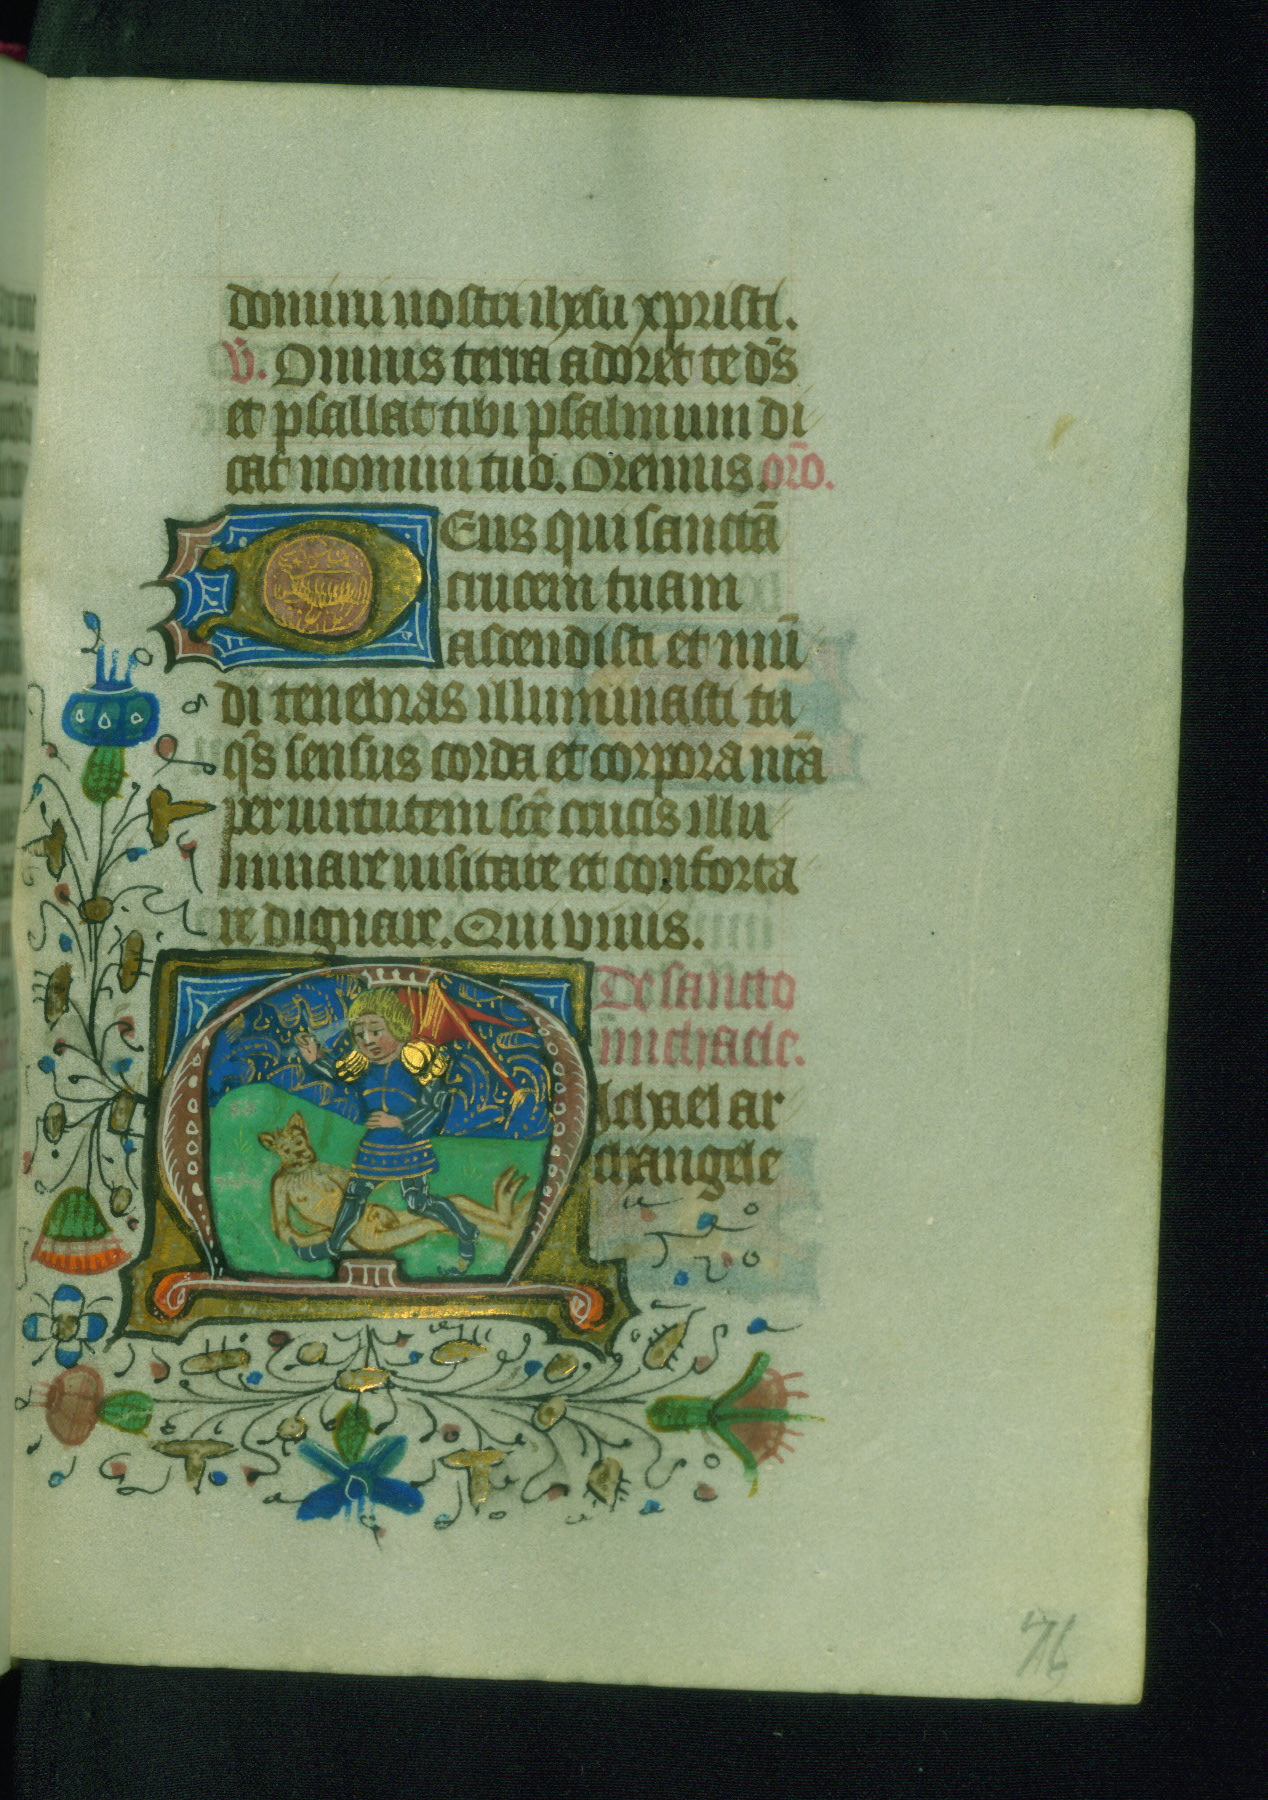 domini nostri ihesu xpristi.
v̄. Omnis terra adoret te dn̄s
et psallat tibi psalmum di
cat nomini tuo. Oremus. orō.
Deus qui sanctā
crucem tuam
ascendisti et mū
di tenebras illuminasti tu
qs̄ sensus corda et corpora nr̄a
per uirtutem scē crucis illu
minare uisitare et conforta
re dignare. Qui viuis.
De sancto
michaele.
Michael ar
changele
76